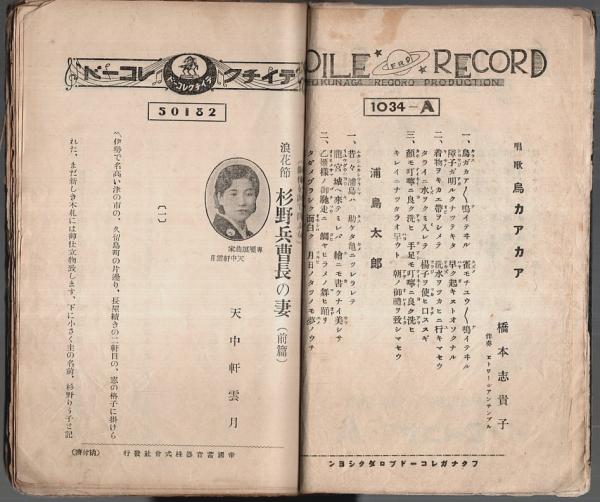 OILE RECORD
FRD
FUKUNAGA RECORD PRODUCTION
1034-A
唱歌 烏カアカア
橋本志貴子
伴奏 エトワールアンサンブル
一、烏カアカア〱鳴イテヰル 雀モチユウ〱鳴イテヰル
障子ガ明ルクナツテキタ 早ク起キヌトオソクナル
二、着物ヲキカエ帯ヲシメテ 洗水ヲツカヒニ行キマセウ
タライニ水ヲクミ入レテ 楊子ヲ使ヒ口ススギ
三、顔モ叮嚀ニ良ク洗ヒ 手足モ叮嚀ニ良ク洗ヒ
キレイニナツタラオ早ウト 朝ノ御禮ヲ致シマセウ
浦島太郎
一、昔々浦島ハ 助ケタ亀ニツレラレテ
龍宮城ヘ来テミレバ 繪ニモ書ケナイ美シサ
二、乙姫様ノ御馳走ニ 鯛ヤヒラメノ舞ヒ踊リ
タダメヅラシク面白ク 月日ノタツノモ夢ノウチ
ンヨシクダロプドーコレガナクフ
ドーコレクチイテ
テイチクレコード
50182
浪花節 杉野兵曹長の妻(前篇)
天中軒雲月
家曲浪屬專
月雲軒中天
(一)
〽伊勢で名高い津の市の、久留島町の片邊り、長屋続きの二軒目の、窓の格子に掛けら
れた、まだ新しき木札には御仕立物致します、下に小さく主の名前、杉野りう子と記
行發社會式株器音蓄國帝